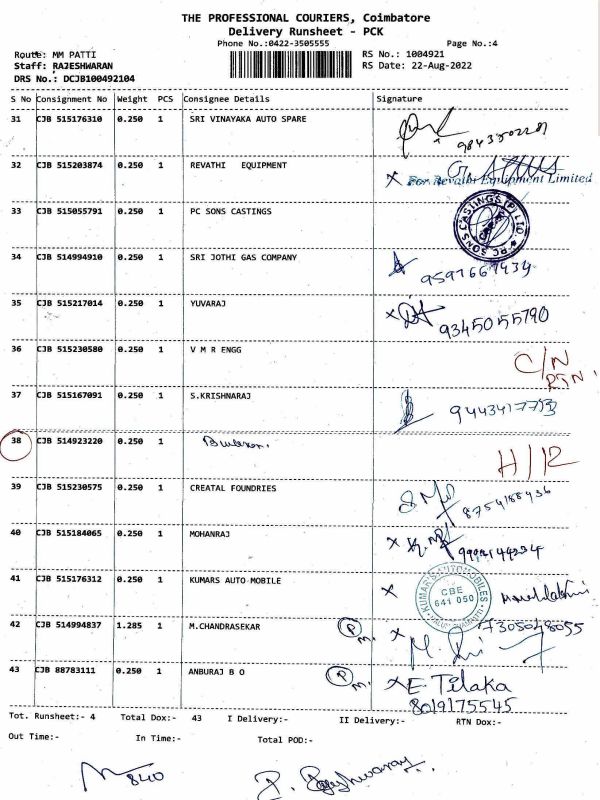 THE PROFESSIONAL COURIERS, Coimbatore
Delivery Runsheet - PCK
Phone No.:0422-3505555 Page No.:4
Route: MM PATTI RS No.: 1004921
Staff: RAJESHWARAN RS Date: 22-Aug-2022
DRS No.: DCJB100492104
S No Consignment No Weight PCS Consignee Details Signature
31 CJB 515176310 0.250 1 SRI VINAYAKA AUTO SPARE
32 CJB 515203874 0.250 1 REVATHI EQUIPMENT
For Revathi Equipment Limited
33 CJB 515055791 0.250 1 PC SONS CASTINGS
34 CJB 514994910 0.250 1 SRI JOTHI GAS COMPANY
9597667434
35 CJB 515217014 0.250 1 YUVARAJ
9345055790
36 CJB 515230580 0.250 1 V M R ENGG
C/N
RTN.
37 CJB 515167091 0.250 1 S.KRISHNARAJ
9443417753
38 CJB 514923220 0.250 1
39 CJB 515230575 0.250 1 CREATAL FOUNDRIES
8754188436
40 CJB 515184065 0.250 1 MOHANRAJ
41 CJB 515176312 0.250 1 KUMARS AUTO MOBILE
KUMAR'S AUTOMOBILES
CBE
641 050
42 CJB 514994837 1.285 1 M.CHANDRASEKAR P M. 7305048055
43 CJB 88783111 0.250 1 ANBURAJ B O P M. E. Tilaka
8019175545
Tot. Runsheet:- 4 Total Dox:- 43 I Delivery:- II Delivery:- RTN Dox:-
Out Time:- In Time:- Total POD:-
840